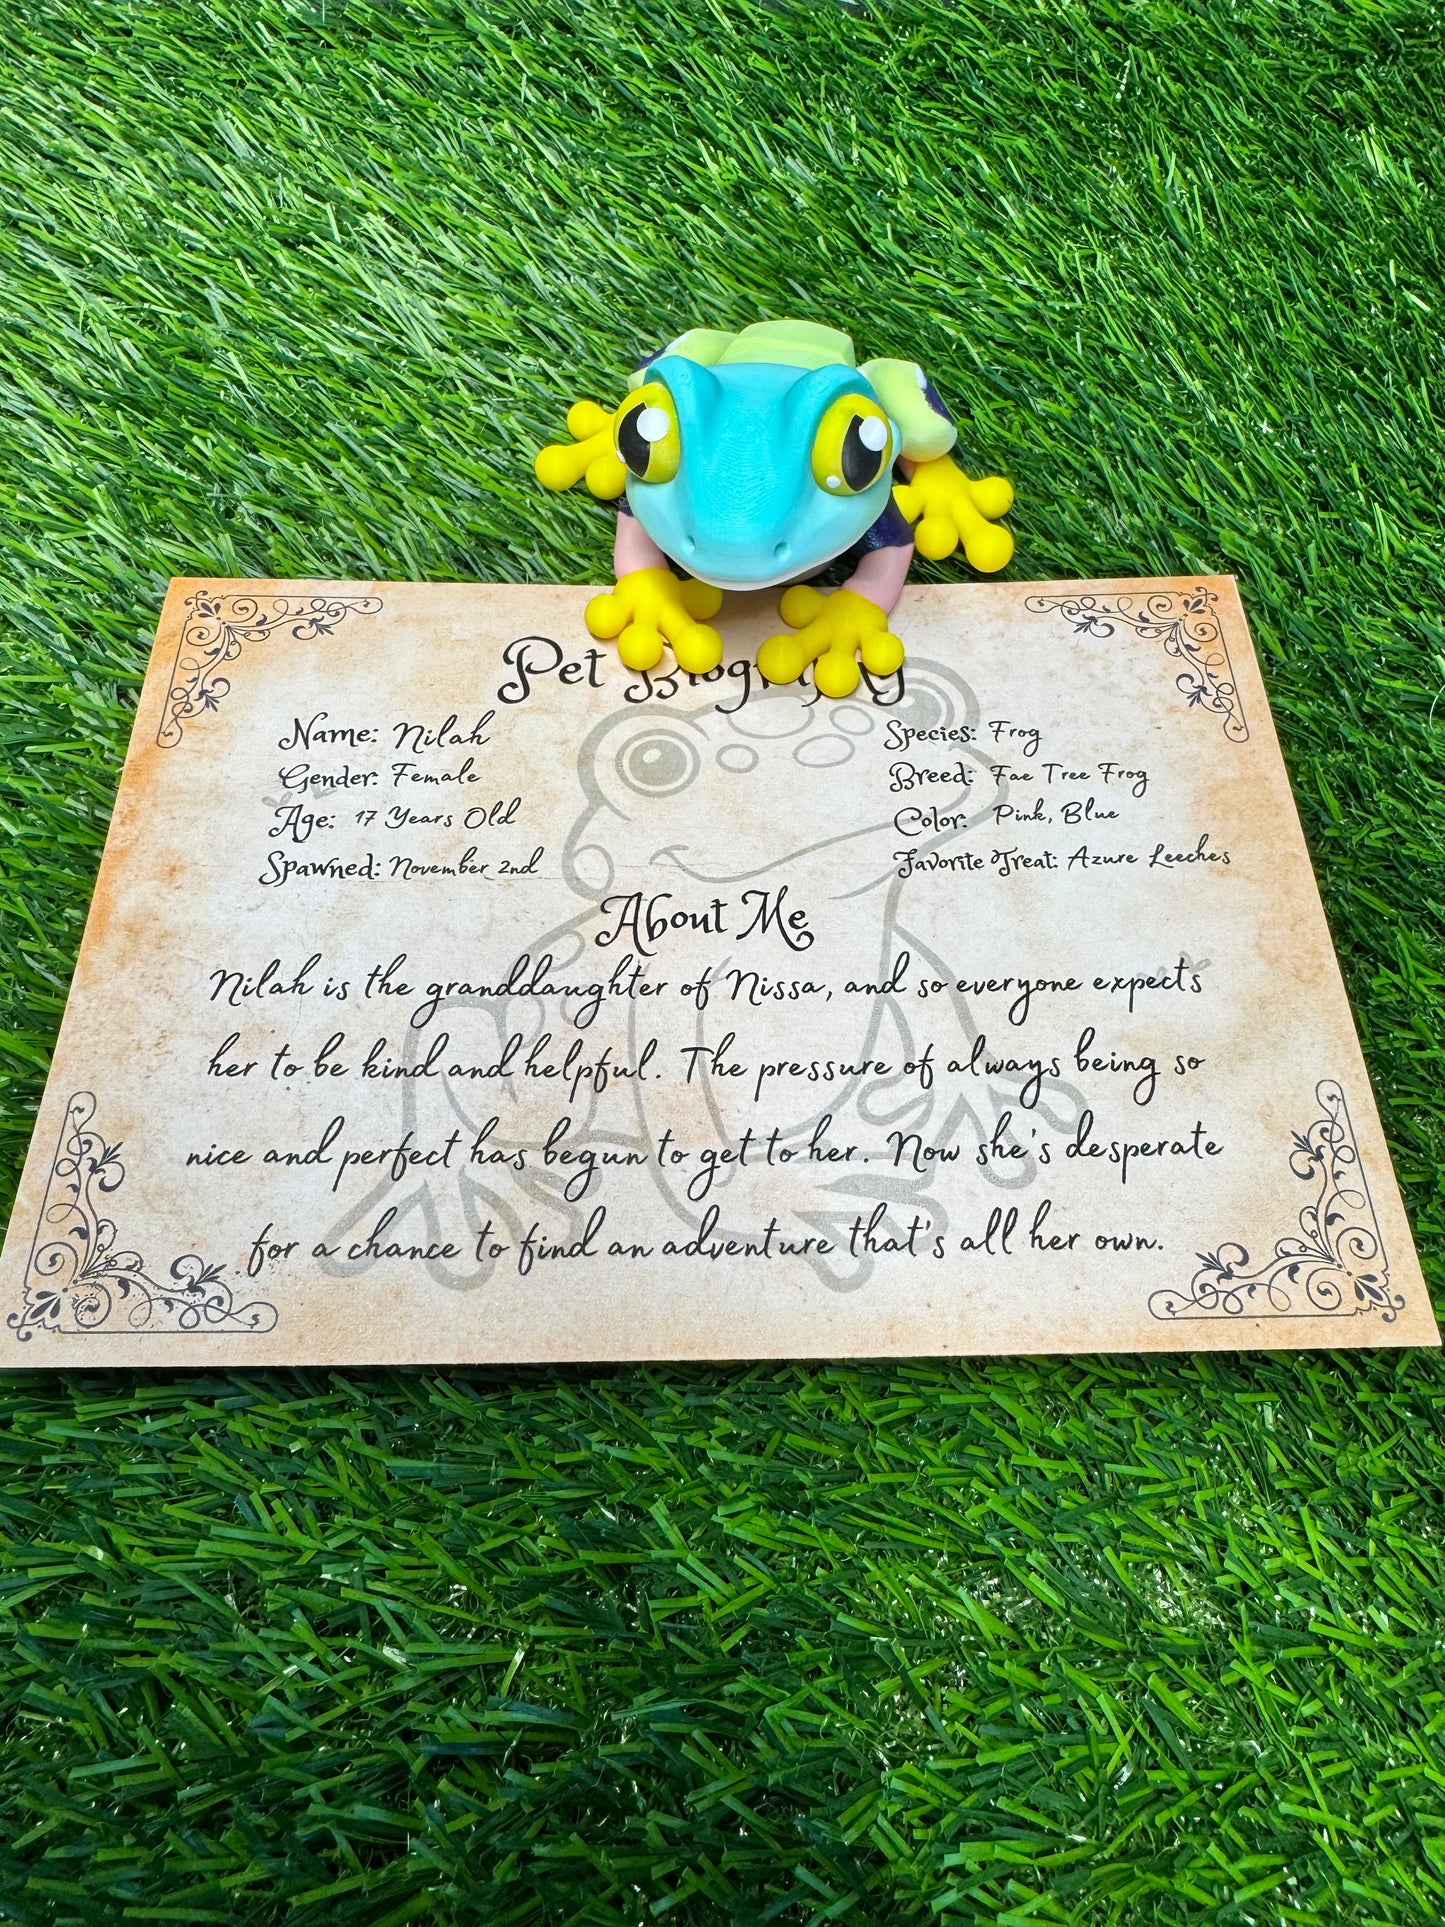 Pet Biography
Name: Nilah
Gender: Female
Age: 17 Years Old
Spawned: November 2nd
Species: Frog
Breed: Fae Tree Frog
Color: Pink, Blue
Favorite Treat: Azure Leeches
About Me
Nilah is the granddaughter of Nissa, and so everyone expects
her to be kind and helpful. The pressure of always being so
nice and perfect has begun to get to her. Now she's desperate
for a chance to find an adventure that's all her own.